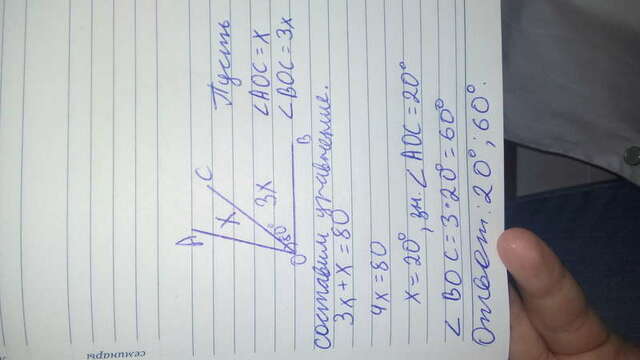 Пусть
∠AOC = x
∠BOC = 3x
A
C
x
3x
80°
O
B
составим уравнение.
3x + x = 80
4x = 80
x = 20°, зн. ∠AOC = 20°
∠BOC = 3 · 20° = 60°
Ответ: 20°; 60°.
семинары